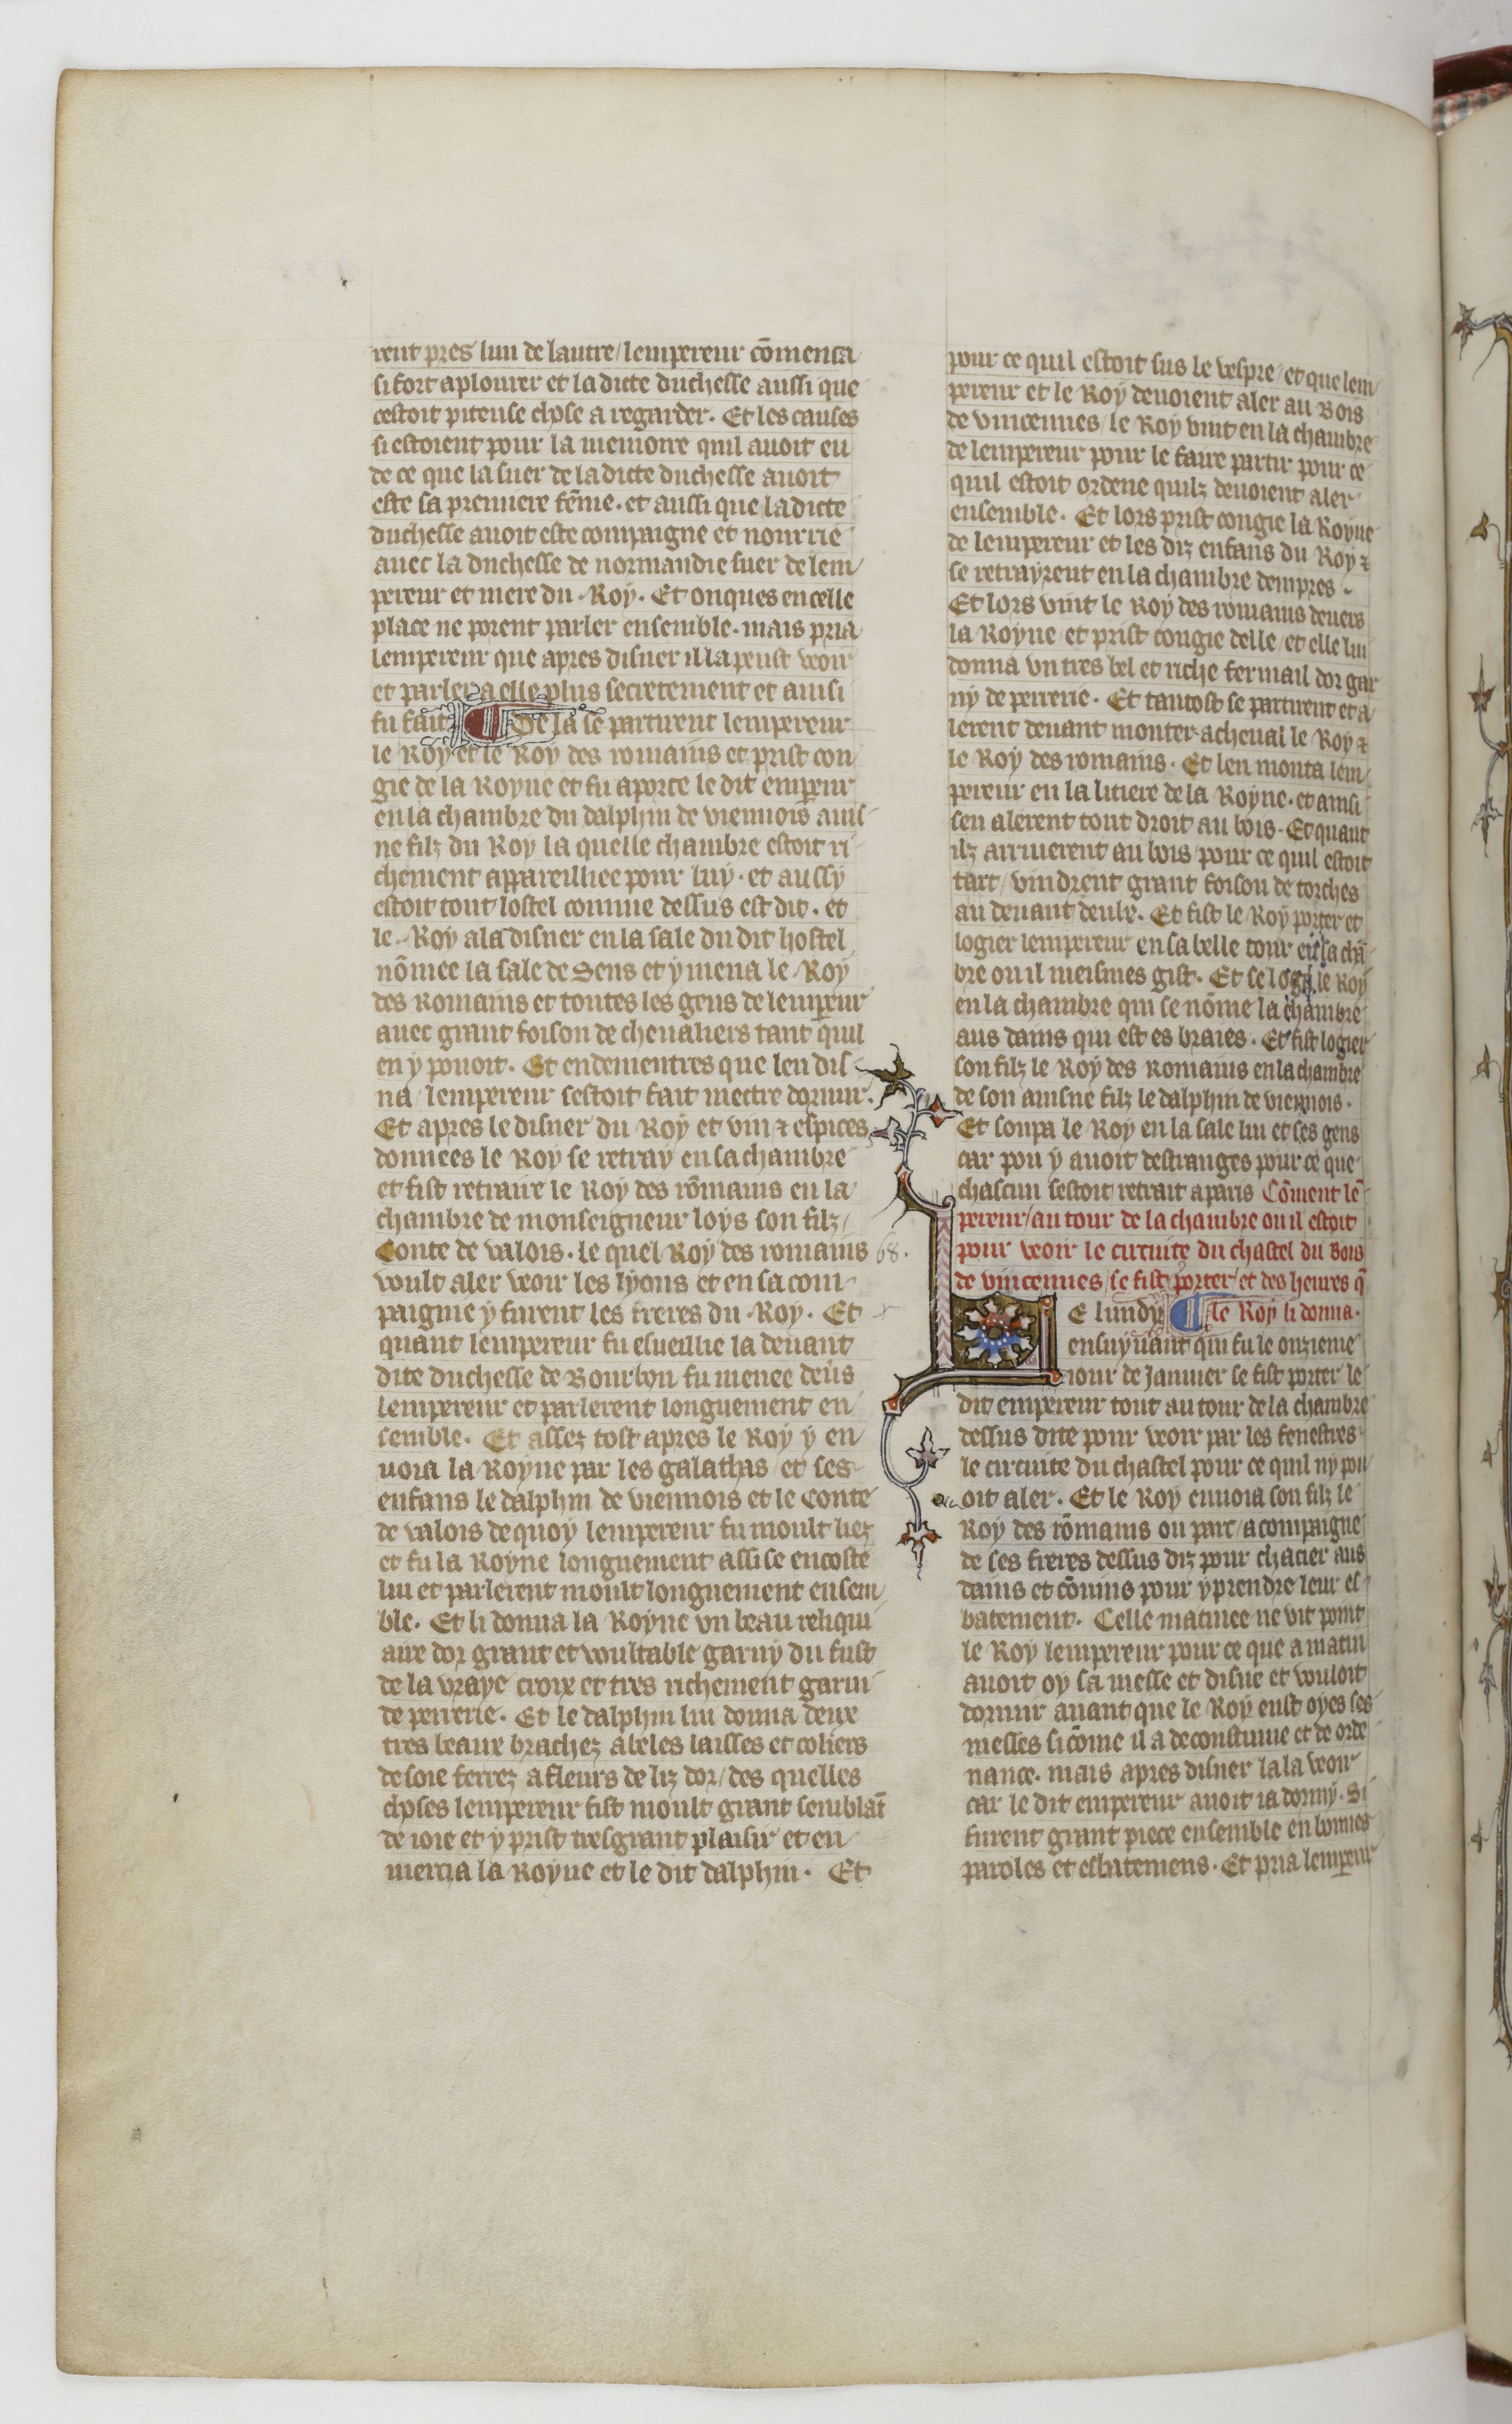 rent pres lun de lautre / lempereur cõmenca
si fort a plourer et la dicte duchesse aussi que
cestoit piteuse chose a regarder. Et les causes
si estoient pour la memoire quil auoit eu
de ce que la suer de la dicte duchesse auoit
este sa premiere fẽme. et aussi que la dicte
duchesse auoit este compaigne et nourrie
auec la duchesse de normandie suer de lem
pereur et mere du Roy. Et onques en celle
place ne porent parler ensemble. mais pria
lempereur que apres disner il la peust veoir
et parler a elle plus secretement et ainsi
fu fait ¶ De la se partirent lempereur
le Roy et le Roy des romains et prist con
gie de la Royne et fu aporte le dit empereur
en la chambre du dalphin de viennois ains
ne filz du Roy la quelle chambre estoit ri
chement appareilliee pour luy. et aussy
estoit tout lostel comme dessus est dit. et
le Roy ala disner en la sale du dit hostel
nõmee la sale de Sens et y mena le Roy
des Romains et toutes les gens de lempereur
auec grant foison de cheualiers tant quil
en y pouoit. Et endementres que len dis
na / lempereur sestoit fait mettre dormir.
Et apres le disner du Roy et vin ⁊ espices
donnees le Roy se retray en sa chambre
et fist retraire le Roy des rõmains en la
chambre de monseigneur loys son filz /
Conte de valois. le quel Roy des romains
voult aler veoir les lyons et en sa com
paignie y furent les freres du Roy. Et
quant lempereur fu esueillie la deuant
dite duchesse de Bourbon fu menee deu's
lempereur et parlerent longuement en
semble. Et assez tost apres le Roy y en
uoia la Royne par les galathas / et ses
enfans le dalphin de viennois et le Conte
de valois de quoy lempereur fu moult liez
et fu la Royne longuement assise encoste
lui et parlerent moult longuement ensem
ble. Et li donna la Royne vn beau reliqui
aire dor grant et voultable garny du fust
de la vraye croix et tres richement garni
de perrerie. Et le dalphin lui donna deux
tres beaux brachez a beles laisses et coliers
de soie ferrez a fleurs de liz dor / des quelles
choses lempereur fist moult grant semblãt
de ioie et y prist tresgrant plaisir et en
mercia la Royne et le dit dalphin. Et
pour ce quil estoit sus le vespre / et que lem
pereur et le Roy deuoient aler au Bois
de vincennes / le Roy vint en la chambre
de lempereur pour le faire partir pour ce
quil estoit ordene quilz deuoient aler
ensemble. Et lors prist congie la Royne
de lempereur et les diz enfans du Roy ⁊
se retrayrent en la chambre dempres.
Et lors vint le Roy des romains deuers
la Royne et prist congie delle / et elle lui
donna vn tres bel et riche fermail dor gar
ny de perrerie. Et tantost se partirent et a
lerent deuant monter a cheual le Roy ⁊
le Roy des romains. Et len monta lem
pereur en la litiere de la Royne. et ainsi
sen alerent tout droit au bois. Et quant
ilz arriuerent au bois pour ce quil estoit
tart / vindrent grant foison de torches
au deuant deulx. Et fist le Roy porter et
logier lempereur en sa belle tour en sa chã
bre ou il meismes gist. Et se loga le Roy
en la chambre qui se nõme la chambre
aus dains qui est es braies. Et fist logier
son filz le Roy des Romains en la chambre
de son ainsne filz le dalphin de viennois.
Et soupa le Roy en la sale lui et ses gens
car pou y auoit destranges pour ce que
chascun sestoit retrait a paris Cõment lẽ
pereur / au tour de la chambre ou il estoit
68. pour veoir le circuite du chastel du Bois
de vincennes / se fist porter / et des heures q̃
Le lundy ¶ le Roy li donna.
ensuyuant qui fu le onzieme
iour de Januier se fist porter le
dit empereur tout au tour de la chambre
dessus dite pour veoir par les fenestres
le circuite du chastel pour ce quil ny pou
oit aler. Et le Roy enuoia son filz le
Roy des rõmains ou parc / acompaigne
de ses freres dessus diz pour chacier aus
dains et cõnins pour y prendre leur es
batement. Celle matinee ne vit point
le Roy lempereur pour ce que a matin
auoit oy sa messe et disne et vouloit
dormir auant que le Roy eust oyes ses
messes si cõme il a de coustume et de orde
nance. mais apres disner lala veoir
car le dit empereur auoit ia dormy. Si
furent grant piece ensemble en bonnes
paroles et esbatemens. Et pria lempereur